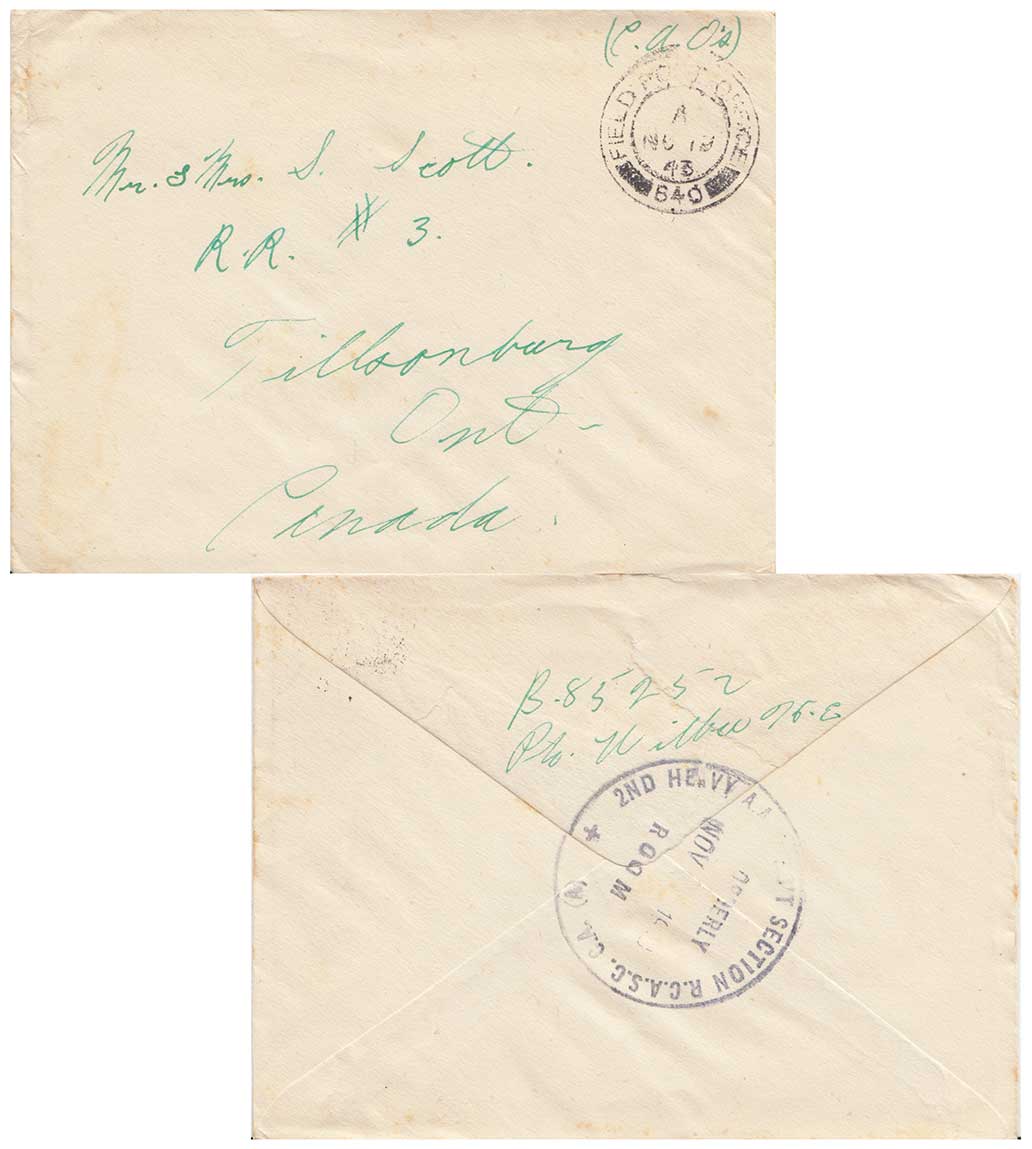 (C.A.O's)
FIELD POST OFFICE
A
NO 19
43
640
Mr. & Mrs. S. Scott.
R.R. # 3.
Tillsonburg
Ont-
Canada.
B.85252
Pte. Wilbee W.E
2ND HEAVY A.A. SECTION R.C.A.S.C. C.A. (A)
ORDERLY
ROOM
NOV